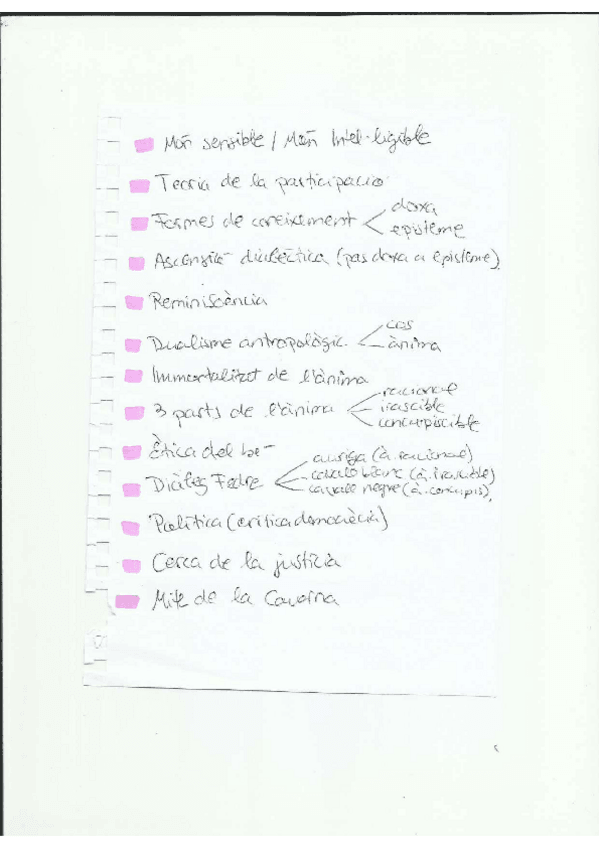 Món sensible / Món Intel·ligible
Teoria de la participació
Formes de coneixement < doxa
epistême
Ascensió dialèctica (pas doxa a epistême)
Reminiscència
Dualisme antropològic < cos
ànima
Immortalitat de l'ànima
3 parts de l'ànima < racional
irascible
concupiscible
Ètica del bé
Diàleg Fedre < auriga (à. racional)
cavall blanc (à. irascible)
cavall negre (à. concupis).
Política (crítica democràcia)
Cerca de la justícia
Mite de la Caverna